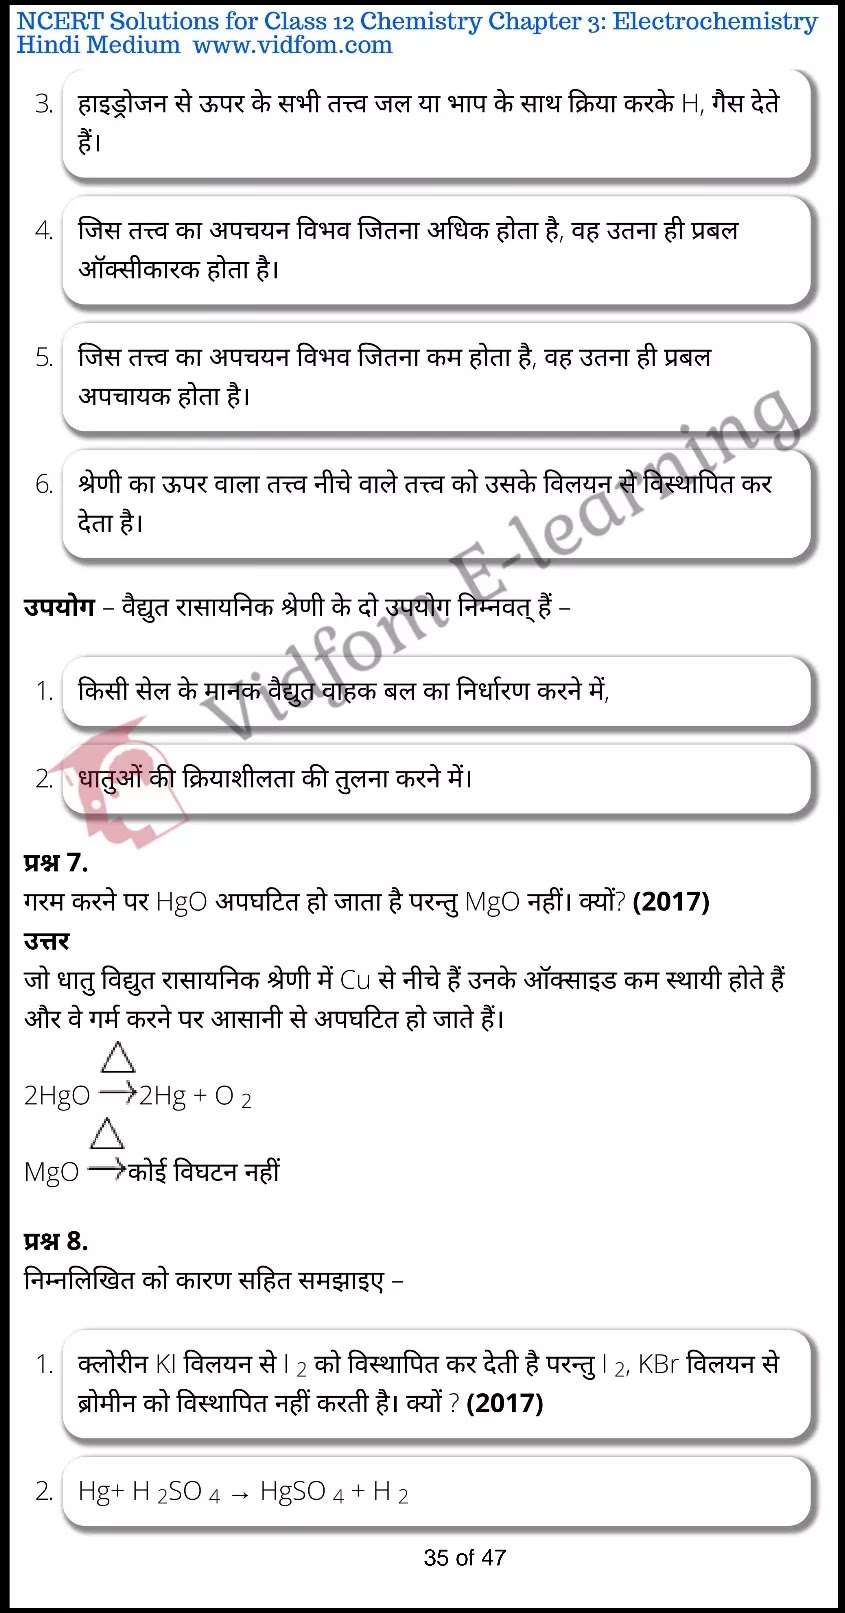 NCERT Solutions for Class 12 Chemistry Chapter 3: Electrochemistry
Hindi Medium www.vidfom.com
3. हाइड्रोजन से ऊपर के सभी तत्त्व जल या भाप के साथ क्रिया करके H, गैस देते
हैं।
4. जिस तत्त्व का अपचयन विभव जितना अधिक होता है, वह उतना ही प्रबल
ऑक्सीकारक होता है।
5. जिस तत्त्व का अपचयन विभव जितना कम होता है, वह उतना ही प्रबल
अपचायक होता है।
6. श्रेणी का ऊपर वाला तत्त्व नीचे वाले तत्त्व को उसके विलयन से विस्थापित कर
देता है।
उपयोग – वैद्युत रासायनिक श्रेणी के दो उपयोग निम्नवत् हैं –
1. किसी सेल के मानक वैद्युत वाहक बल का निर्धारण करने में,
2. धातुओं की क्रियाशीलता की तुलना करने में।
Vidfom E-learning
प्रश्न 7.
गरम करने पर HgO अपघटित हो जाता है परन्तु MgO नहीं। क्यों? (2017)
उत्तर
जो धातु विद्युत रासायनिक श्रेणी में Cu से नीचे हैं उनके ऑक्साइड कम स्थायी होते हैं
और वे गर्म करने पर आसानी से अपघटित हो जाते हैं।
△
2HgO ⟶2Hg + O 2
△
MgO ⟶कोई विघटन नहीं
प्रश्न 8.
निम्नलिखित को कारण सहित समझाइए –
1. क्लोरीन KI विलयन से I 2 को विस्थापित कर देती है परन्तु I 2, KBr विलयन से
ब्रोमीन को विस्थापित नहीं करती है। क्यों ? (2017)
2. Hg+ H 2SO 4 → HgSO 4 + H 2
35 of 47